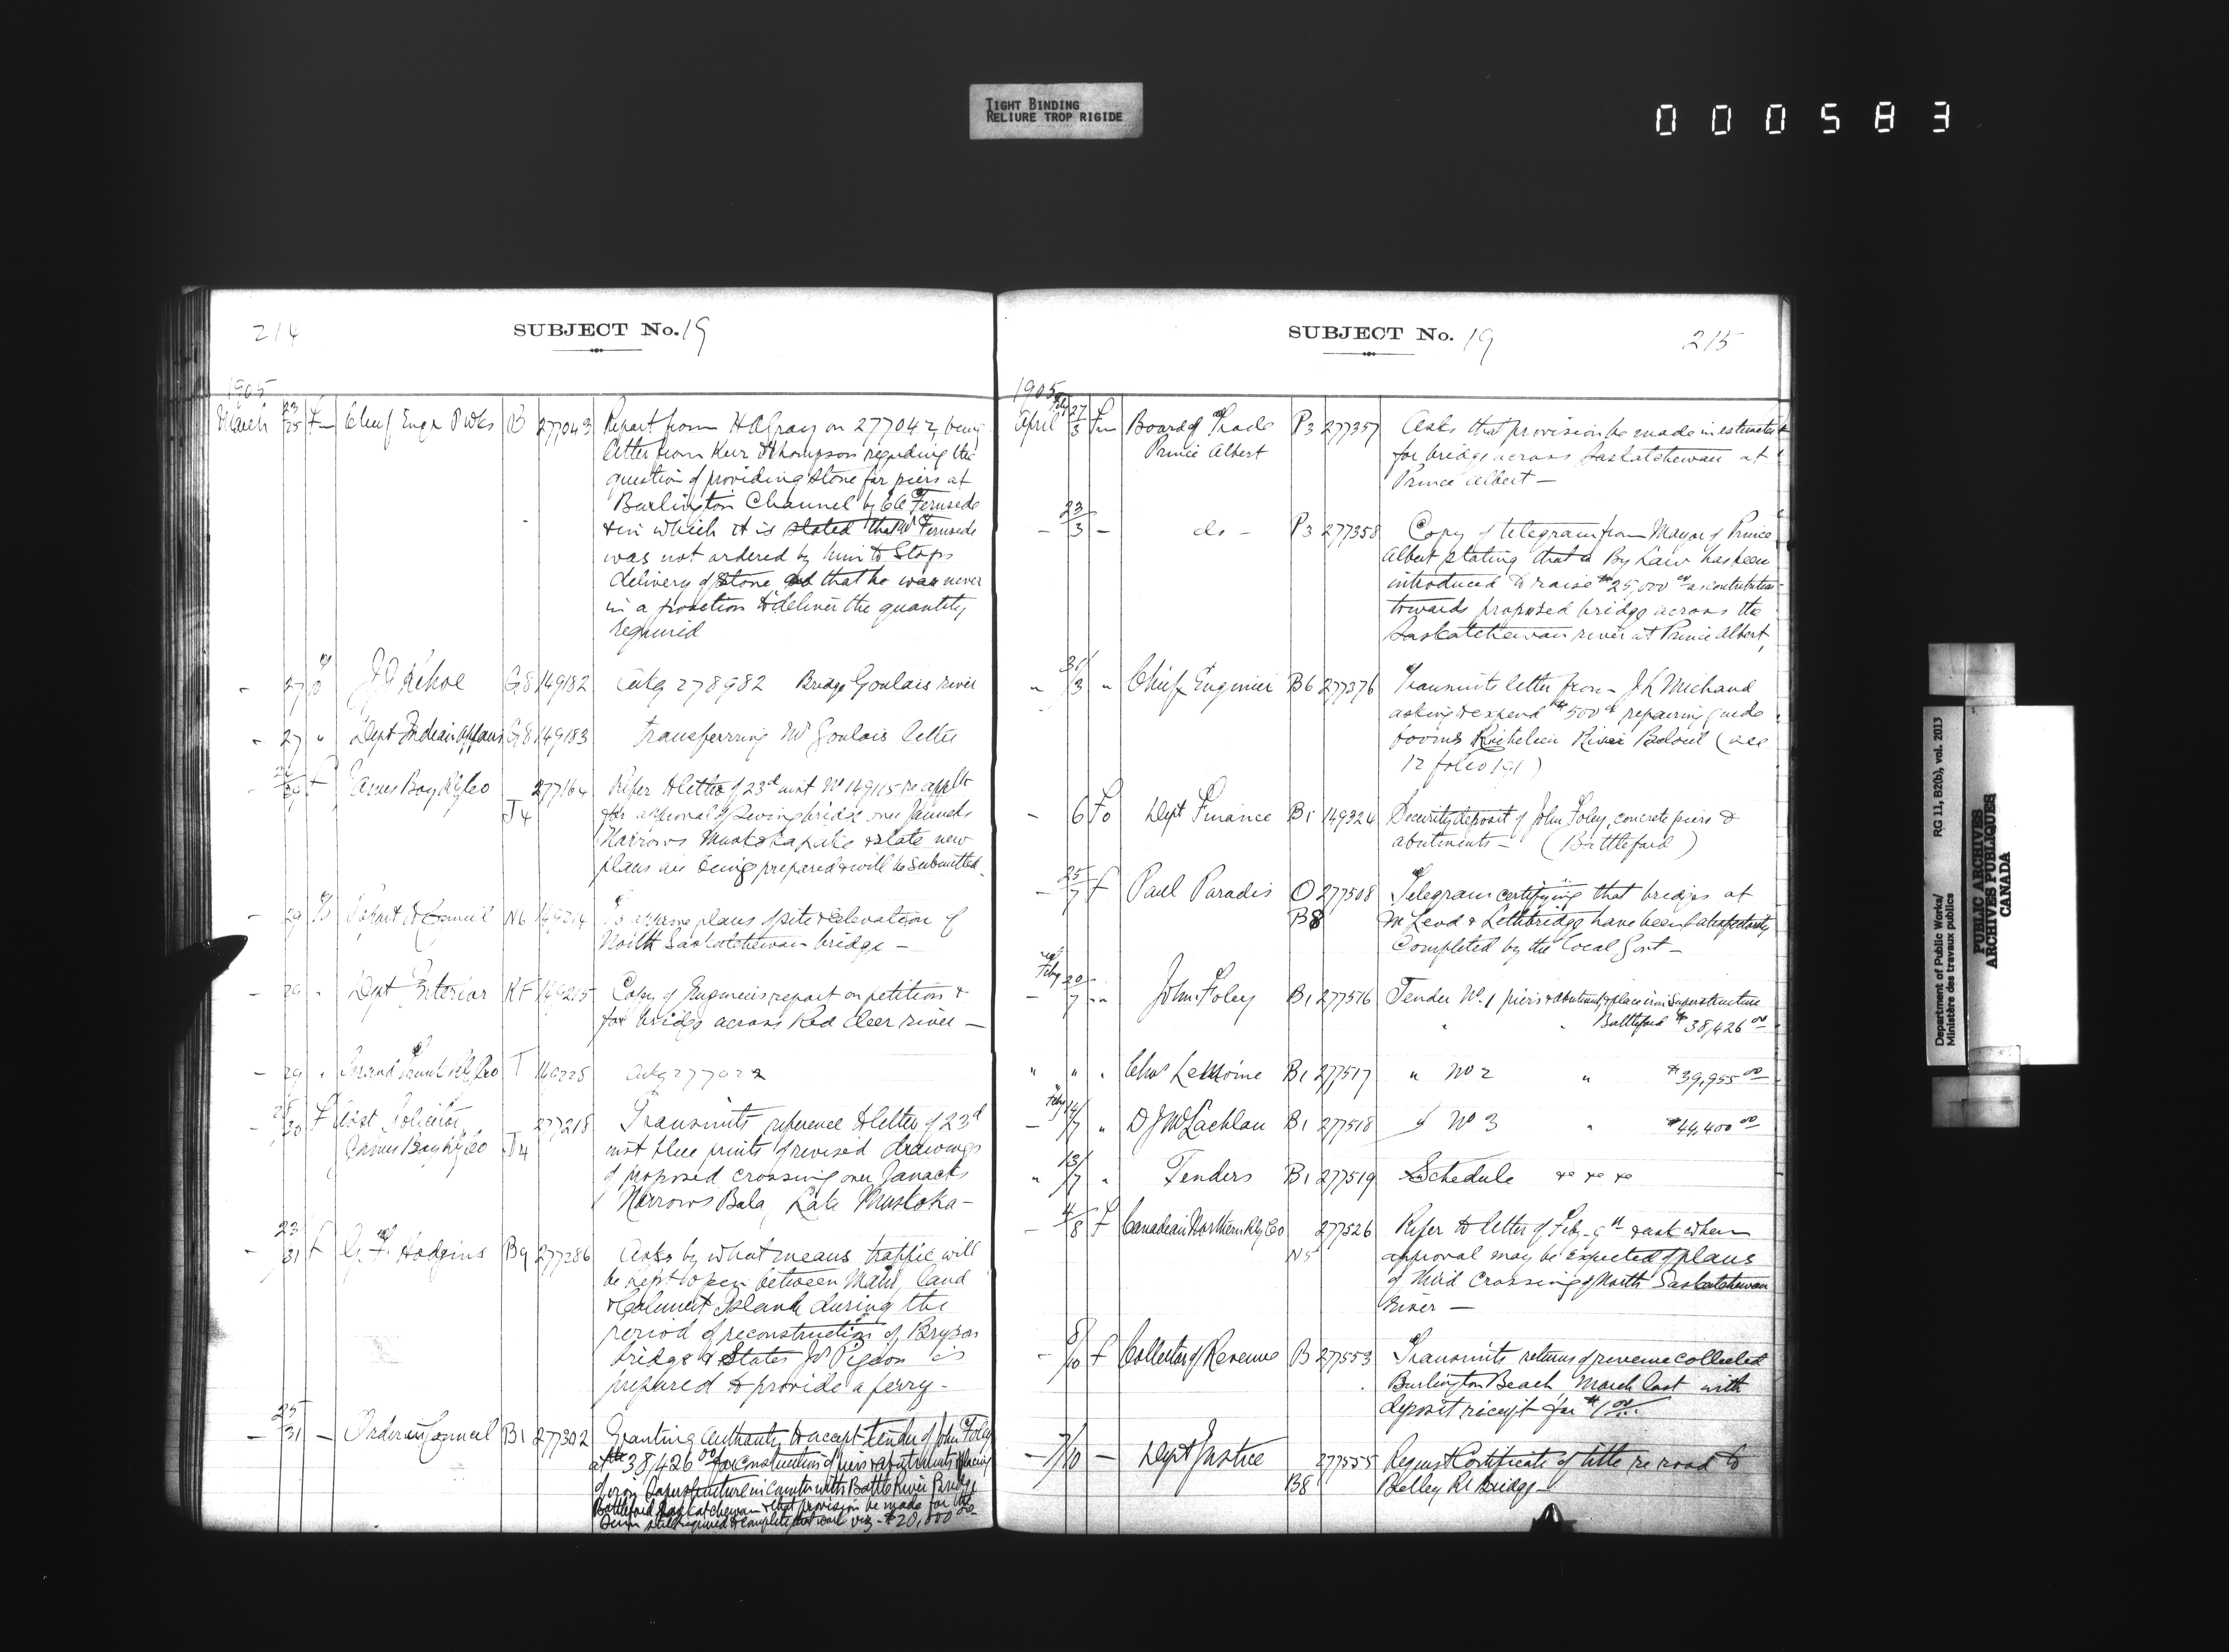 TIGHT BINDING
RELIURE TROP RIGIDE
000583
214
SUBJECT No. 19
1905
March 23/25 Fm Chief Engr P Wks B 277043 Report from H A Gray on 277042, being
letter from Kerr & Thompson regarding the
question of providing stone for piers at
Burlington Channel by
& in which it is stated that Mr
was not ordered by him to Stop
delivery of stone and that he was never
in a position to deliver the quantity
required
- 27 To J J Kehoe G8 149182 Bridge Goulais river
- 27 " Dept Indian Affairs G8 149183 Transferring Mr Goulais letter
29 f James Bay Ry Co J4 277164 Refer to letter of 23d inst No 149115 re applic
for approval of Swing bridge over Jannacks
Narrows Muskoka & state new
plans are being prepared & will be submitted.
- 29 To Report to Council N6 149214 To approve plans of site & elevation of
North Saskatchewan bridge -
- 29 " Dept Interior RF 149215 Copy of Engineers report on petition
for bridge across Red Deer river -
- 29 " Grand Trunk Ry Co T
30 f Asst Solicitor 277218 Transmits reference to letter of 23d
James Bay Ry Co J4 inst blue prints of revised drawings
of proposed crossing over Janacks
Narrows Bala, Lake Muskoka -
- 23/31 f G. F. Hodgins B9 277286 Asks by what means traffic will
be kept open between Main land
& Calumet Island during the
period of reconstruction of Bryson
bridge & States Mr Pigeon is
prepared to provide a ferry -
- 25/31 - Order in Council B1 277302 Granting Authority to accept tender of John Foley
at $38,426.00 for construction of piers & abutments & placing
of iron Superstructure in connection with Battle River Bridge
Battleford Saskatchewan & that provision be made for the
sum still required to complete that work viz - $20,000.00
SUBJECT No. 19
215
1905
April Feby 27/3 Fm Board of Trade P3 277357 Asks that provision be made in estimates
Prince Albert for bridge across Saskatchewan at
Prince Albert -
- 23/3 - do - P3 277358 Copy of telegram from Mayor of Prince
Albert stating that a By Law has been
introduced to raise $25,000.00 as contribution
towards proposed bridge across the
Saskatchewan river at Prince Albert,
" 31/3 " Chief Engineer B6 277376 Transmits letter from J L Michaud
asking to expend $500 repairing guide
booms Richelieu River Beloeil (see
12 folio 191)
- 6 To Dept Finance B1 149324 Security deposit of John Foley, concrete piers &
abutments - (Battleford)
- 25/7 f Paul Paradis O 277508 Telegram certifying that bridges at
B8 McLeod & Lethbridge have been satisfactorily
completed by the local Govt -
Feby 20
- 7 " John Foley B1 277516 Tender No. 1 piers & abutments & place iron Superstructure
Battleford $38,426.00
" " " Chas LeMoine B1 277517 " No 2 " $39,955.00
Feby 14
- 7 " D J McLachlan B1 277518 " No 3 " $44,400.00
" 13/7 " Tenders B1 277519 Schedule
- 4/8 f Canadian Northern Ry Co 277526 Refer to letter of Feby 9th & ask when
N5 approval may be expected of plans
of third crossing of North Saskatchewan
River -
- 8/10 f Collector of Revenue B 277553 Transmits returns of revenue collected
Burlington Beach, March last with
deposit receipt for $1.00
- 7/10 - Dept Justice 277555 Request Certificate of title re road to
B8 Belley R. bridge -
Department of Public Works/ RG 11, B2(b), vol. 2013
Ministère des travaux publics
PUBLIC ARCHIVES
ARCHIVES PUBLIQUES
CANADA